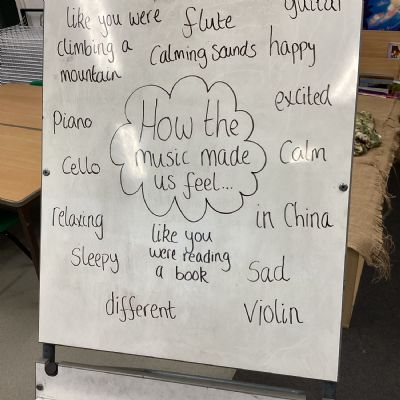 guitar
like you were
climbing a
mountain
flute
Calming sounds
happy
excited
Piano
How the
music made
us feel...
Calm
Cello
relaxing
in China
like you
were reading
a book
Sleepy
Sad
different
Violin